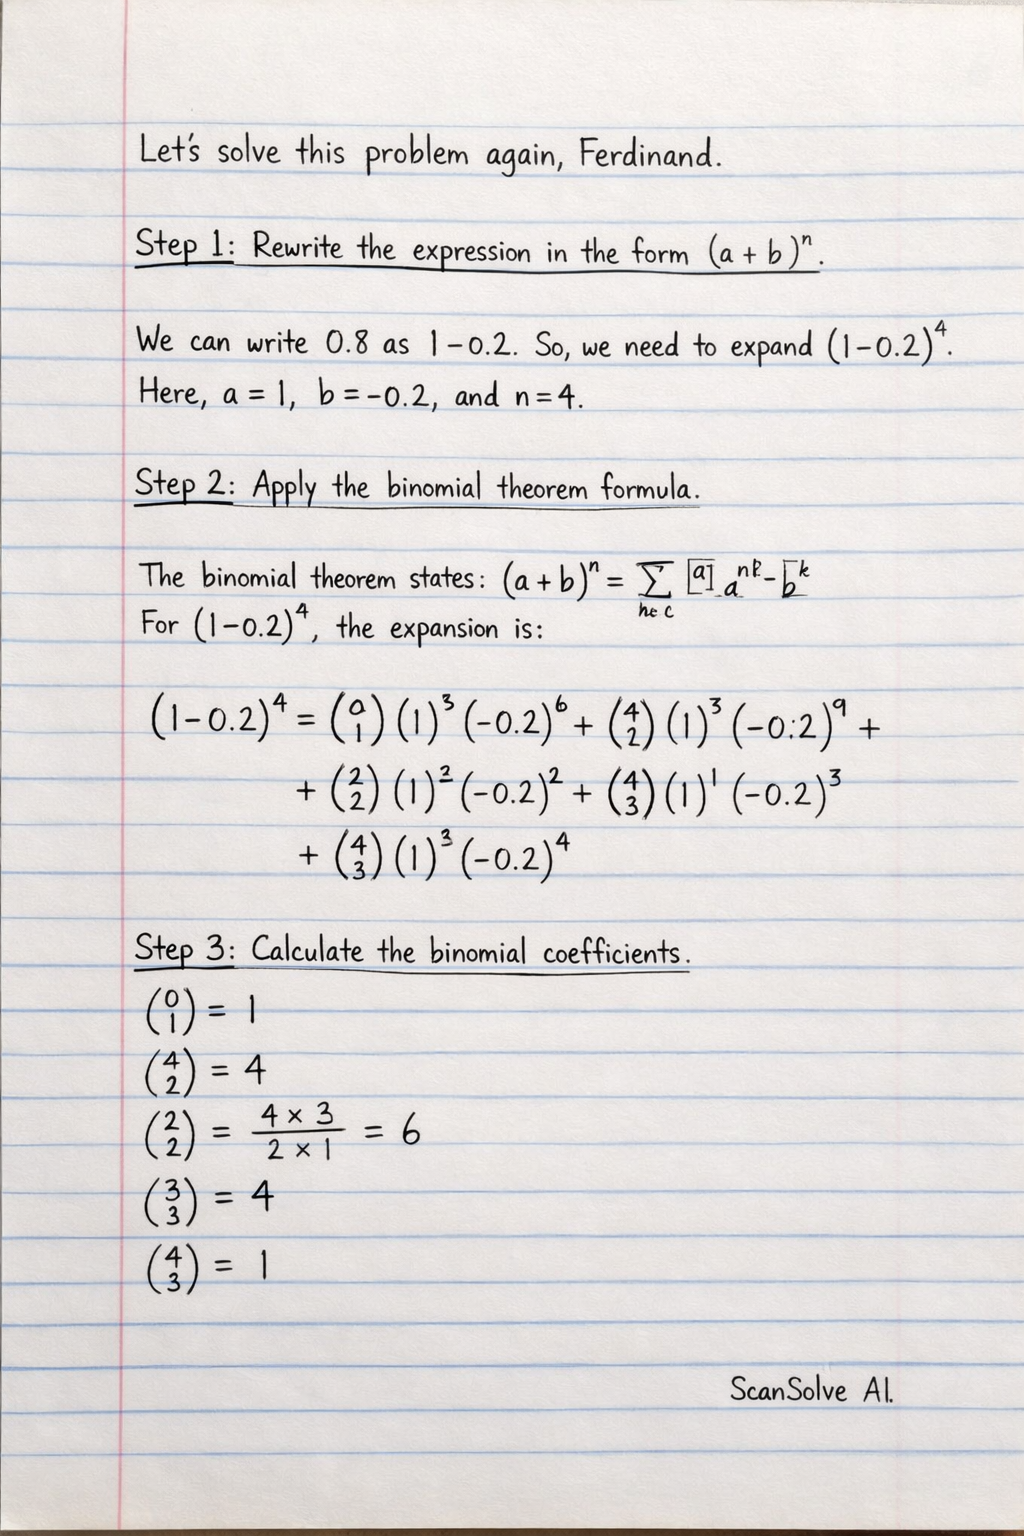 Let's solve this problem again, Ferdinand.
Step 1: Rewrite the expression in the form (a + b)ⁿ.
We can write 0.8 as 1 – 0.2. So, we need to expand (1 – 0.2)⁴.
Here, a = 1, b = –0.2, and n = 4.
Step 2: Apply the binomial theorem formula.
The binomial theorem states: (a + b)ⁿ = ∑ [a] a
For (1 – 0.2)⁴, the expansion is:
(1 – 0.2)⁴ = (0 1) (1)³ (–0.2)⁶ + (4 2) (1)³ (–0:2)⁹ +
+ (2 2) (1)² (–0.2)² + (4 3) (1)¹ (–0.2)³
+ (4 3) (1)³ (–0.2)⁴
Step 3: Calculate the binomial coefficients.
(0 1) = 1
(4 2) = 4
(2 2) = 4 × 3 / 2 × 1 = 6
(3 3) = 4
(4 3) = 1
ScanSolve AI.